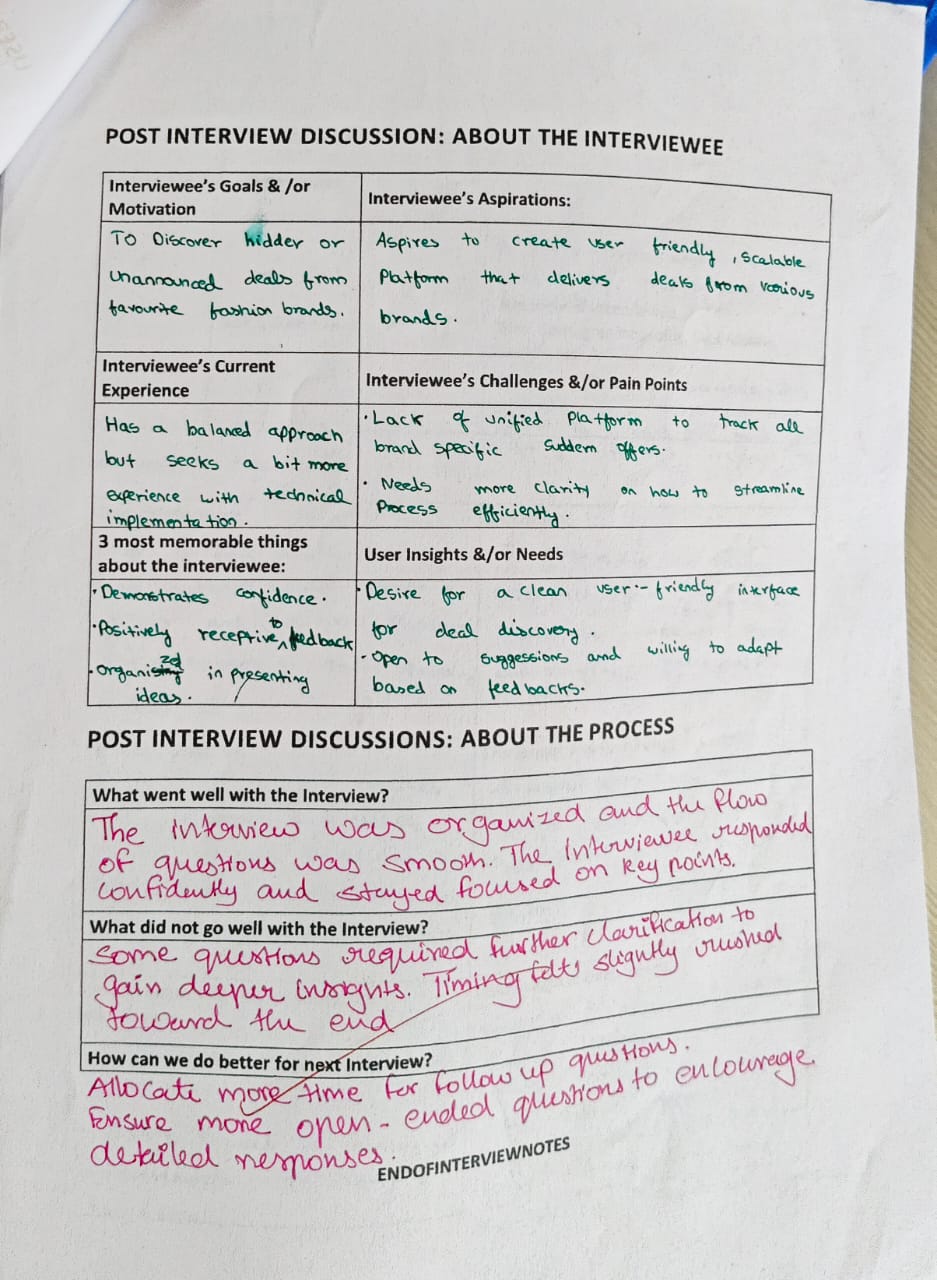 POST INTERVIEW DISCUSSION: ABOUT THE INTERVIEWEE
Interviewee's Goals & /or
Motivation
To Discover hidder or
Unannounced deals from
favourite fashion brands.
Interviewee's Aspirations:
Aspires to create user friendly, scalable
Platform that delivers deals from various
brands.
Interviewee's Current
Experience
Has a balanced approach
but seeks a bit more
experience with technical
implementation.
Interviewee's Challenges &/or Pain Points
• Lack of unified Platform to track all
brand specific suddern offers.
• Needs more clarity on how to streamline
Process efficiently.
3 most memorable things
about the interviewee:
• Demonstrates confidence.
• Positively receptive to feedback
• organized in presenting
ideas.
User Insights &/or Needs
• Desire for a clean user-friendly interface
for deal discovery.
• Open to suggessions and willing to adapt
based on feedbacks.
POST INTERVIEW DISCUSSIONS: ABOUT THE PROCESS
What went well with the Interview?
The interview was organized and the flow
of questions was smooth. The Interviewee responded
confidently and stayed focused on key points.
What did not go well with the Interview?
Some questions required further clarification to
gain deeper insights. Timing felts slightly rushed
toward the end
How can we do better for next Interview?
Allocate more time for follow up questions.
Ensure more open-ended questions to encourage
detailed responses.
ENDOFINTERVIEWNOTES